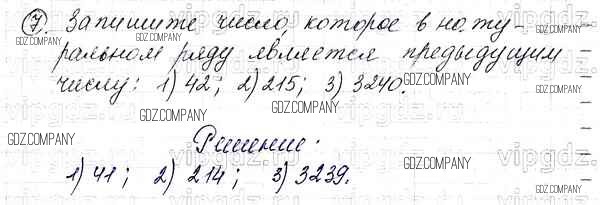 7. Запишите число, которое в нату-
ральном ряду является предыдущим
числу: 1) 42; 2) 215; 3) 3240.
Решение:
1) 41; 2) 214; 3) 3239.
GDZ.COMPANY
GDZ.COMPANY
GDZ.COMPANY
GDZ.COMPANY
GDZ.COMPANY
GDZ.COMPANY
GDZ.COMPANY
GDZ.COMPANY
vipgdz.ru
vipgdz.ru